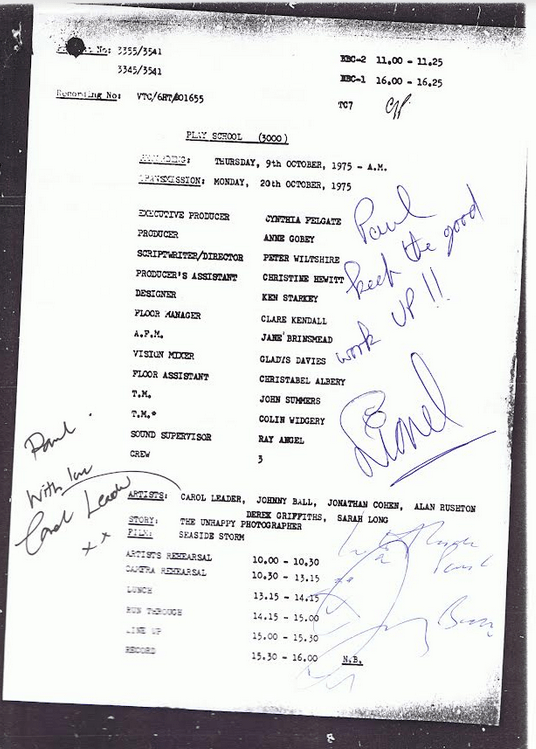 No: 3355/3541
3345/3541
BBC-2 11.00 - 11.25
BBC-1 16.00 - 16.25
Recording No: VTC/6HT/B01655
TC7
PLAY SCHOOL (3000)
RECORDING: THURSDAY, 9th OCTOBER, 1975 - A.M.
TRANSMISSION: MONDAY, 20th OCTOBER, 1975
EXECUTIVE PRODUCER CYNTHIA FELGATE
PRODUCER ANNE GOBEY
SCRIPTWRITER/DIRECTOR PETER WILTSHIRE
PRODUCER'S ASSISTANT CHRISTINE HEWITT
DESIGNER KEN STARKEY
FLOOR MANAGER CLARE KENDALL
A.F.M. JANE BRINSMEAD
VISION MIXER GLADYS DAVIES
FLOOR ASSISTANT CHRISTABEL ALBERY
T.M. JOHN SUMMERS
T.M.* COLIN WIDGERY
SOUND SUPERVISOR RAY ANGEL
CREW 3
Paul
keep the good
work UP!!
Lionel
Paul.
With love
Carol Leader
xx
ARTISTS: CAROL LEADER, JOHNNY BALL, JONATHAN COHEN, ALAN RUSHTON
DEREK GRIFFITHS, SARAH LONG
STORY: THE UNHAPPY PHOTOGRAPHER
FILM: SEASIDE STORM
ARTISTS REHEARSAL 10.00 - 10.30
CAMERA REHEARSAL 10.30 - 13.15
LUNCH 13.15 - 14.15
RUN THROUGH 14.15 - 15.00
LINE UP 15.00 - 15.30
RECORD 15.30 - 16.00 N.B.